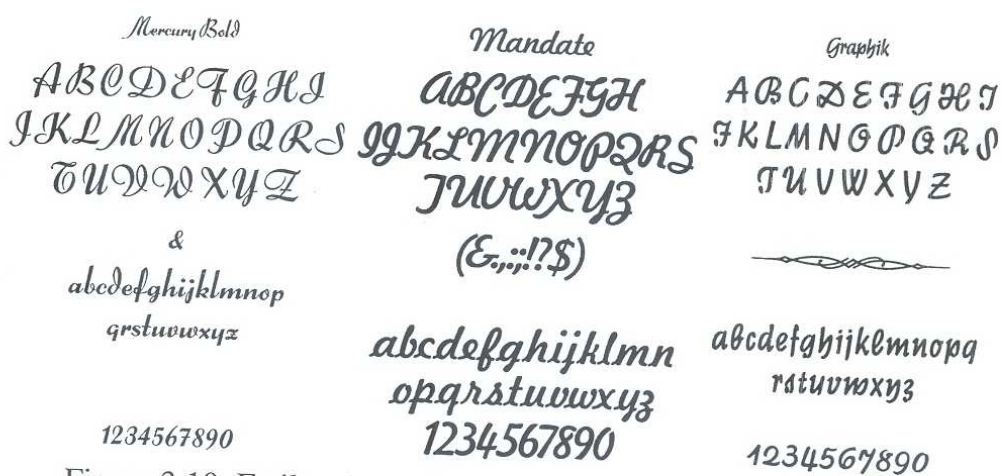 Mercury Bold
ABCDEFGHI
JKLMNOPQRS
TUVWXYZ
&
abcdefghijklmnop
qrstuvwxyz
1234567890
Mandate
ABCDEFGH
IJKLMNOPQRS
TUVWXYZ
(&.,:;!?$)
abcdefghijklmn
opqrstuvwxyz
1234567890
Graphik
ABCDEFGHI
JKLMNOPQRS
TUVWXYZ
abcdefghijklmnopq
rstuvwxyz
1234567890